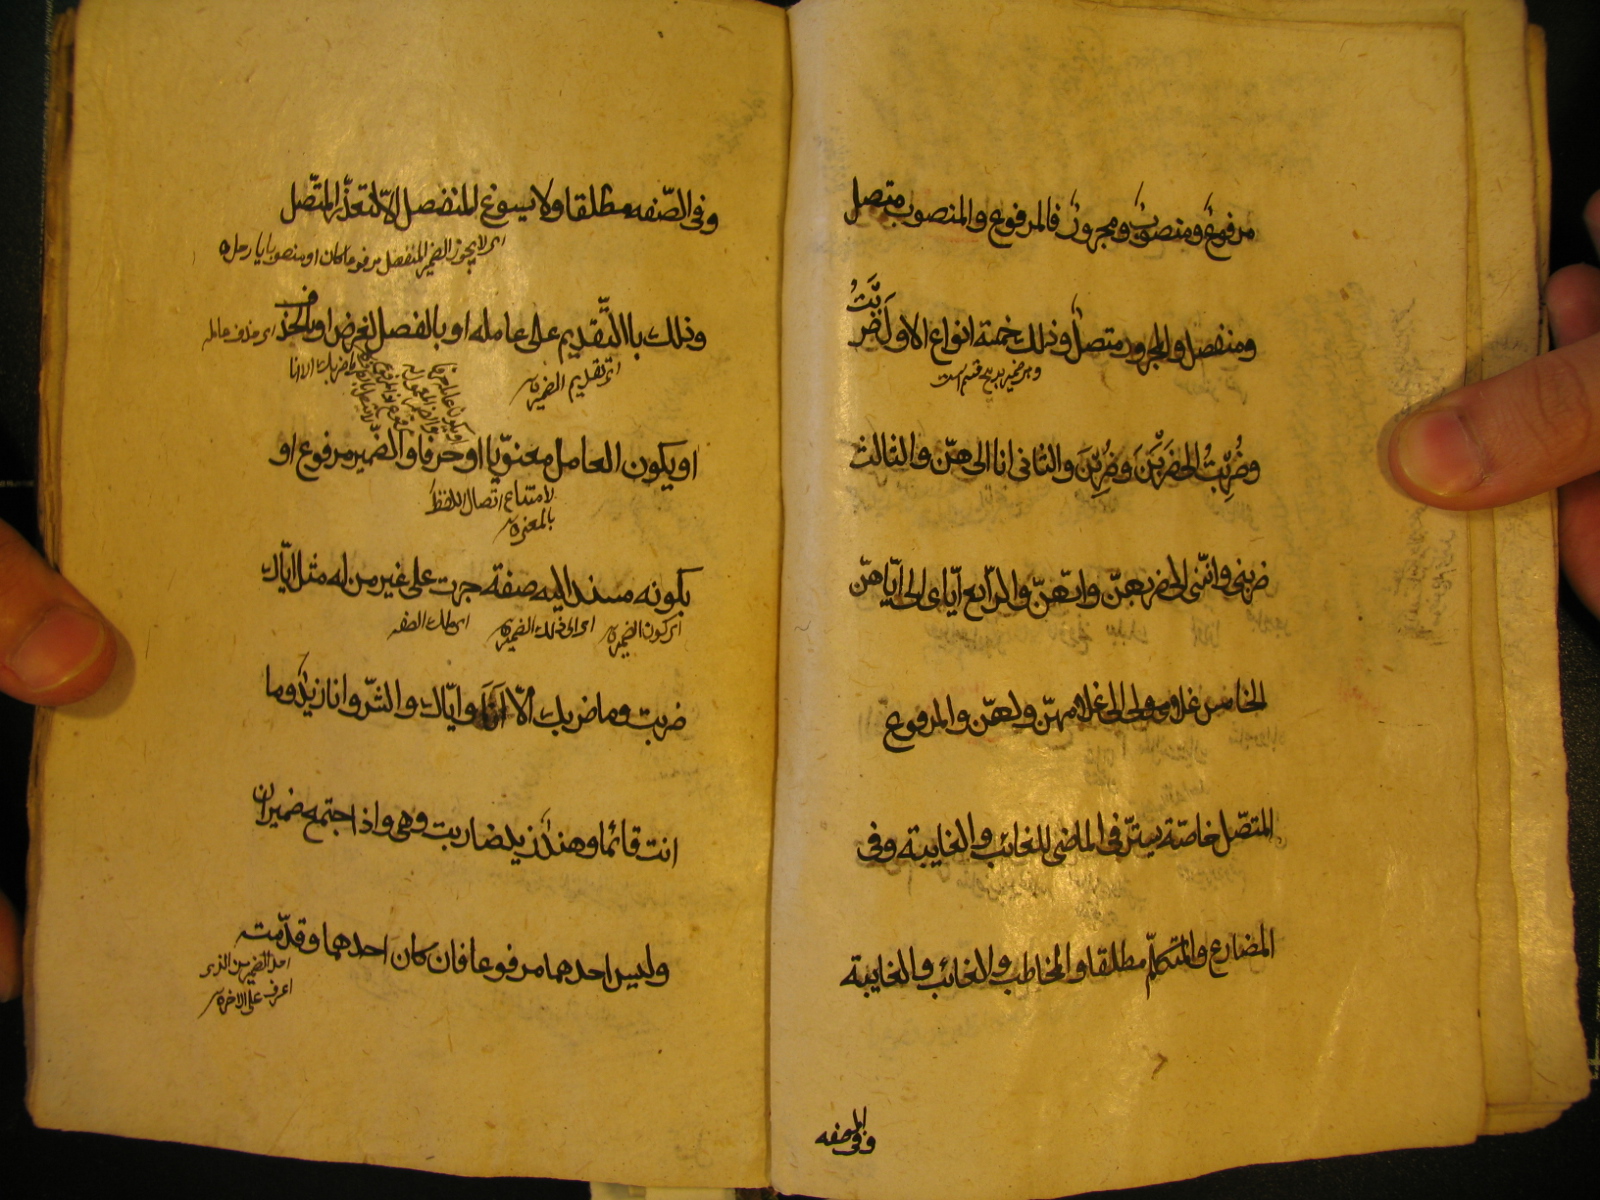 مرفوعٌ ومنصوبٌ ومجرورٌ فالمرفوع والمنصوب متصل
ومنفصل والمجرور متصلٌ وذلك خمسة انواع الاول ضربتُ
وضُرِبْتُ الى ضَرَبْنَ وضُرِبْنَ والثانى انا الى هنّ والثالث
ضربنى واننى الى ضربهنّ وانّهنّ والرّابع ايّاى الى ايّاهنّ
الخامس غلامى ولى الى غلامهنّ ولهنّ والمرفوع
المتصّل خاصّة يستتر فى الماضى للغائب والغايبة وفى
المضارع والمتكلّم مطلقا والمخاطب والغائب والغايبة
وفى الصفه
وفى الصّفه مطلقا ولا يسوغ المنفصل الّا لتعذّر المتّصل
اى لا يجوز الضمير المنفصل مرفوعا كان او منصوبا
وذلك باالتّقديم على عامله او بالفصل لغرض او بالحذف
اى حذف عامله
اى تقديم الضمير
ما ضربك الا انا
او يكون العامل معنويّا او حرفا والضمير مرفوع او
لامتناع اتصال اللفظ
بالمعنى
بكونه مسندا اليه صفة جرت على غير من له مثل ايّاك
اى كون الضمير
اى الى ذلك الضمير
اى تلك الصفه
ضربت وما ضربك الّا انَا وايّاك والشّر وانا زيدٌ وما
انت قائما وهندٌ زيد ضاربته هى واذا اجتمع ضميران
وليس احدهما مرفوعا فان كان احدهما وقدّمته
احد الضميرين الذى
اعرف على الاخر